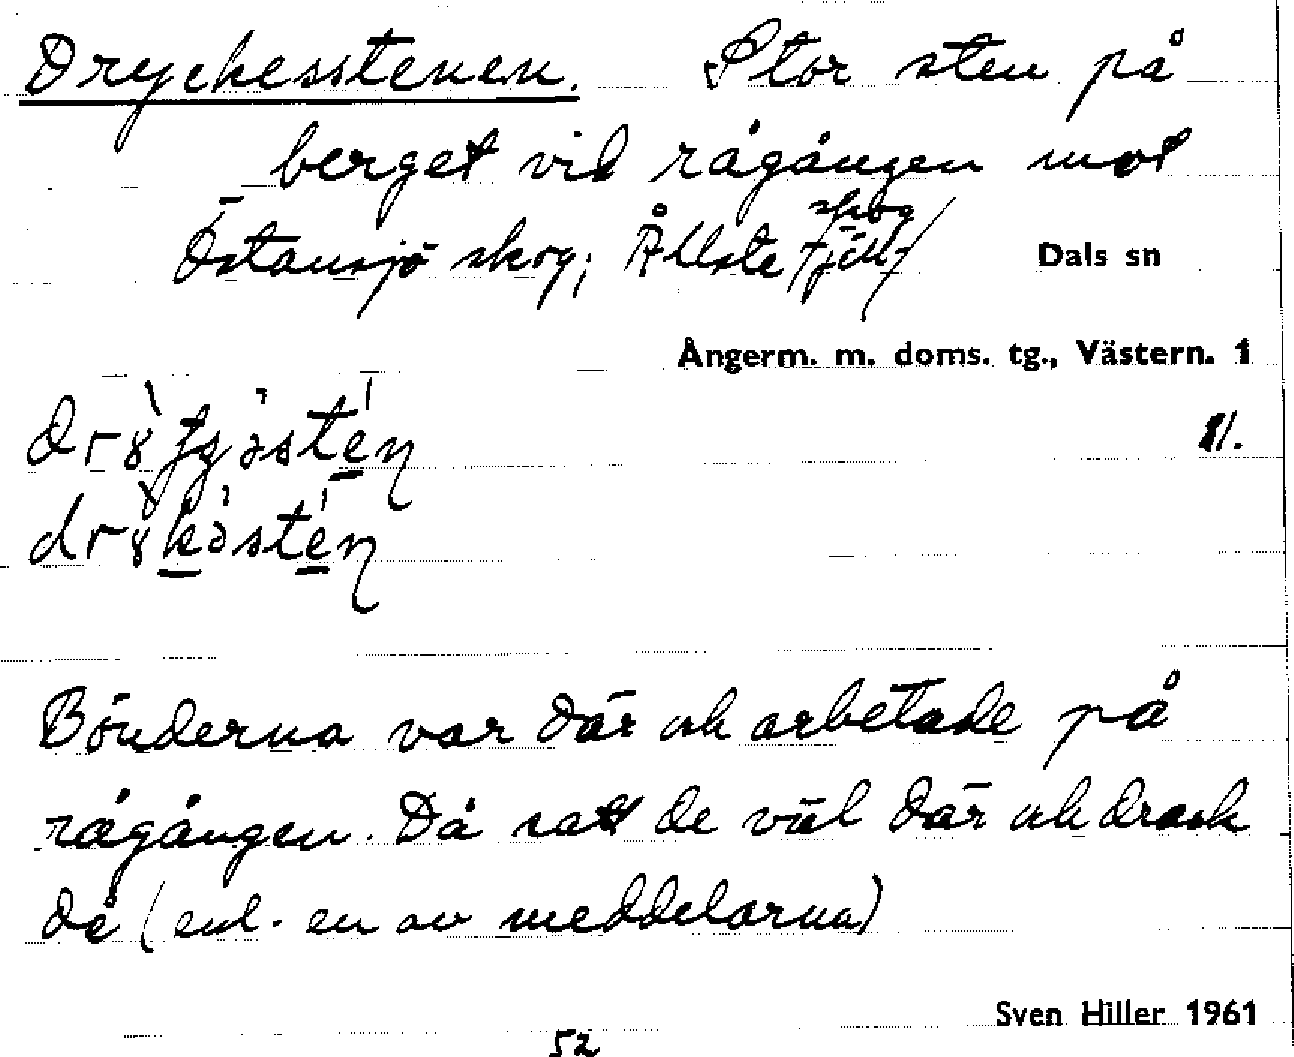 Dryckesstenen. Stor sten på
berget vid rågången mot
Östansjö skog; Ållsta skog Dals sn
Ångerm. m. doms. tg., Västern. 1
Bönderna var där och arbetade på
rågången. Då satt de väl där och drack
då (enl. en av meddelarna)
Sven Hiller 1961
52